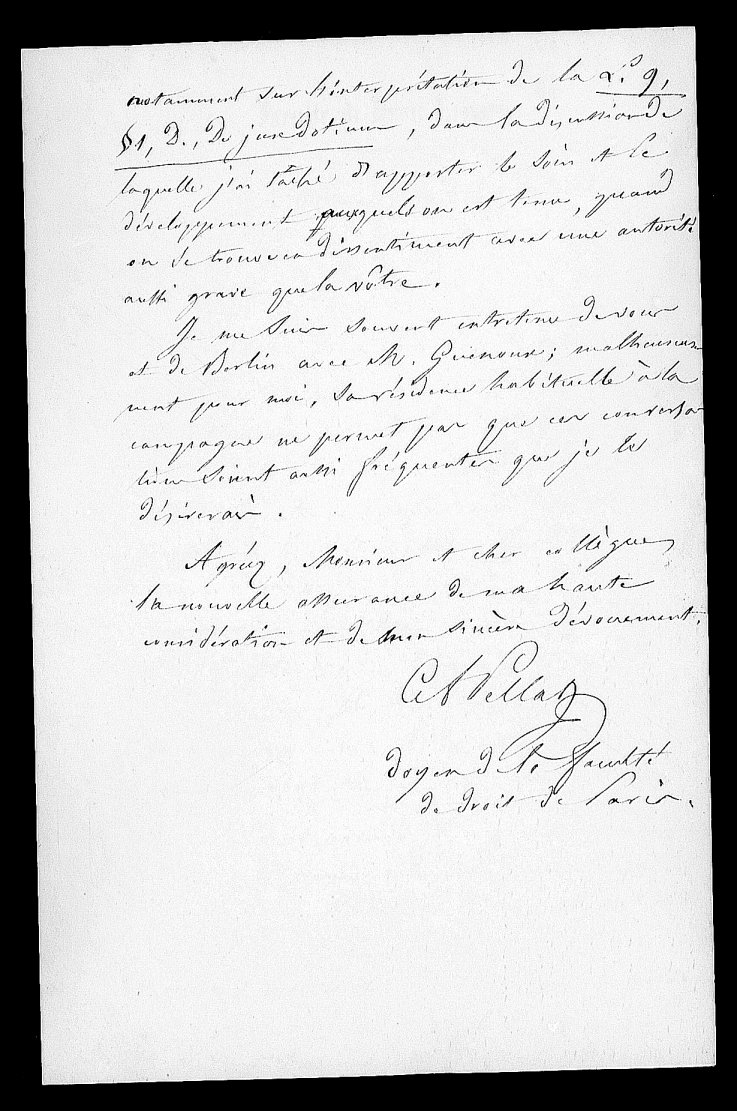 notamment sur l'interprétation de la L. 9,
§1, D., De jure dotium, dans la discussion de
laquelle j'ai tâché d'apporter le soin et le
développement auxquels on est tenu, quand
on se trouve en dissentiment avec une autorité
aussi grave que la vôtre.
Je me suis souvent entretenu de vous
et de Berlin avec M. Guenoux; malheureuse-
ment pour moi, sa résidence habituelle à la
campagne ne permet pas que ces conversa-
tions soient aussi fréquentes que je le
désirerais.
Agréez, Monsieur et cher collègue,
la nouvelle assurance de ma haute
considération et de mon sincère dévouement.
C A Pellat
doyen de la faculté
de droit de Paris.